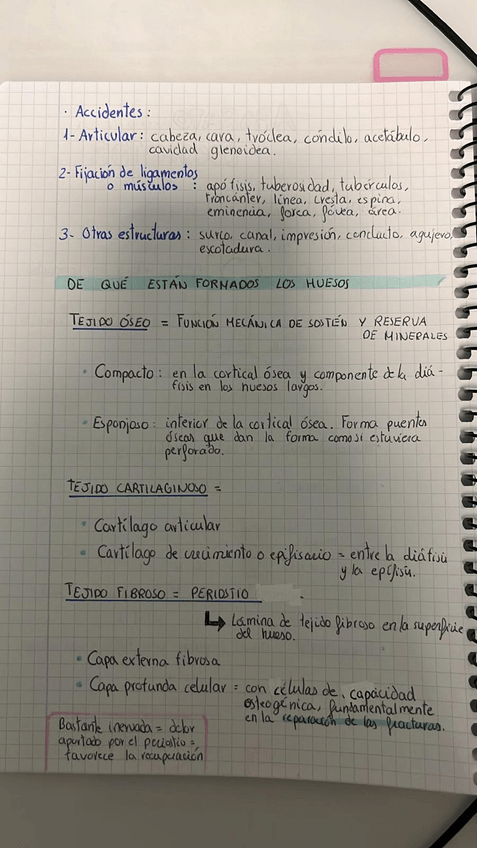 · Accidentes:
1- Articular: cabeza, cara, tróclea, cóndilo, acetábulo,
cavidad glenoidea.
2- Fijación de ligamentos
o músculos : apófisis, tuberosidad, tubérculos,
troncánter, línea, cresta, espina,
eminencia, fosea, fóvea, área.
3- Otras estructuras: surco, canal, impresión, conducto, agujero,
escotadura.
DE QUÉ ESTÁN FORMADOS LOS HUESOS
TEJIDO ÓSEO = FUNCIÓN MECÁNICA DE SOSTÉN Y RESERVA
DE MINERALES
• Compacto: en la cortical ósea y componente de la diá-
fisis en los huesos largos.
• Esponjoso: interior de la cortical ósea. Forma puentes
óseas que dan la forma como si estuviera
perforado.
TEJIDO CARTILAGINOSO =
• Cartílago articular
• Cartílago de crecimiento o epifisario = entre la diáfisis
y la epífisis.
TEJIDO FIBROSO = PERIOSTIO
↳ Lamina de tejido fibroso en la superficie
del hueso.
• Capa externa fibrosa
• Capa profunda celular = con células de capacidad
osteogénica, fundamentalmente
en la reparación de las fracturas.
Bastante inervada = dolor
aportado por el periostio =
favorece la recuperación